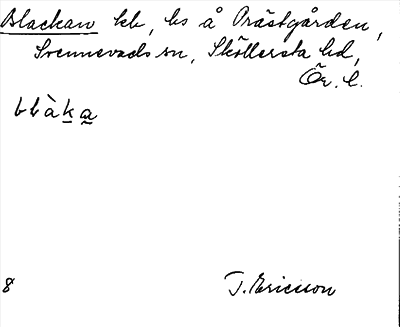 Blackan kb, hs å Prästgården,
Svennevads sn, Sköllersta hd,
Ör. l.
bbàka
8
T. Ericsson